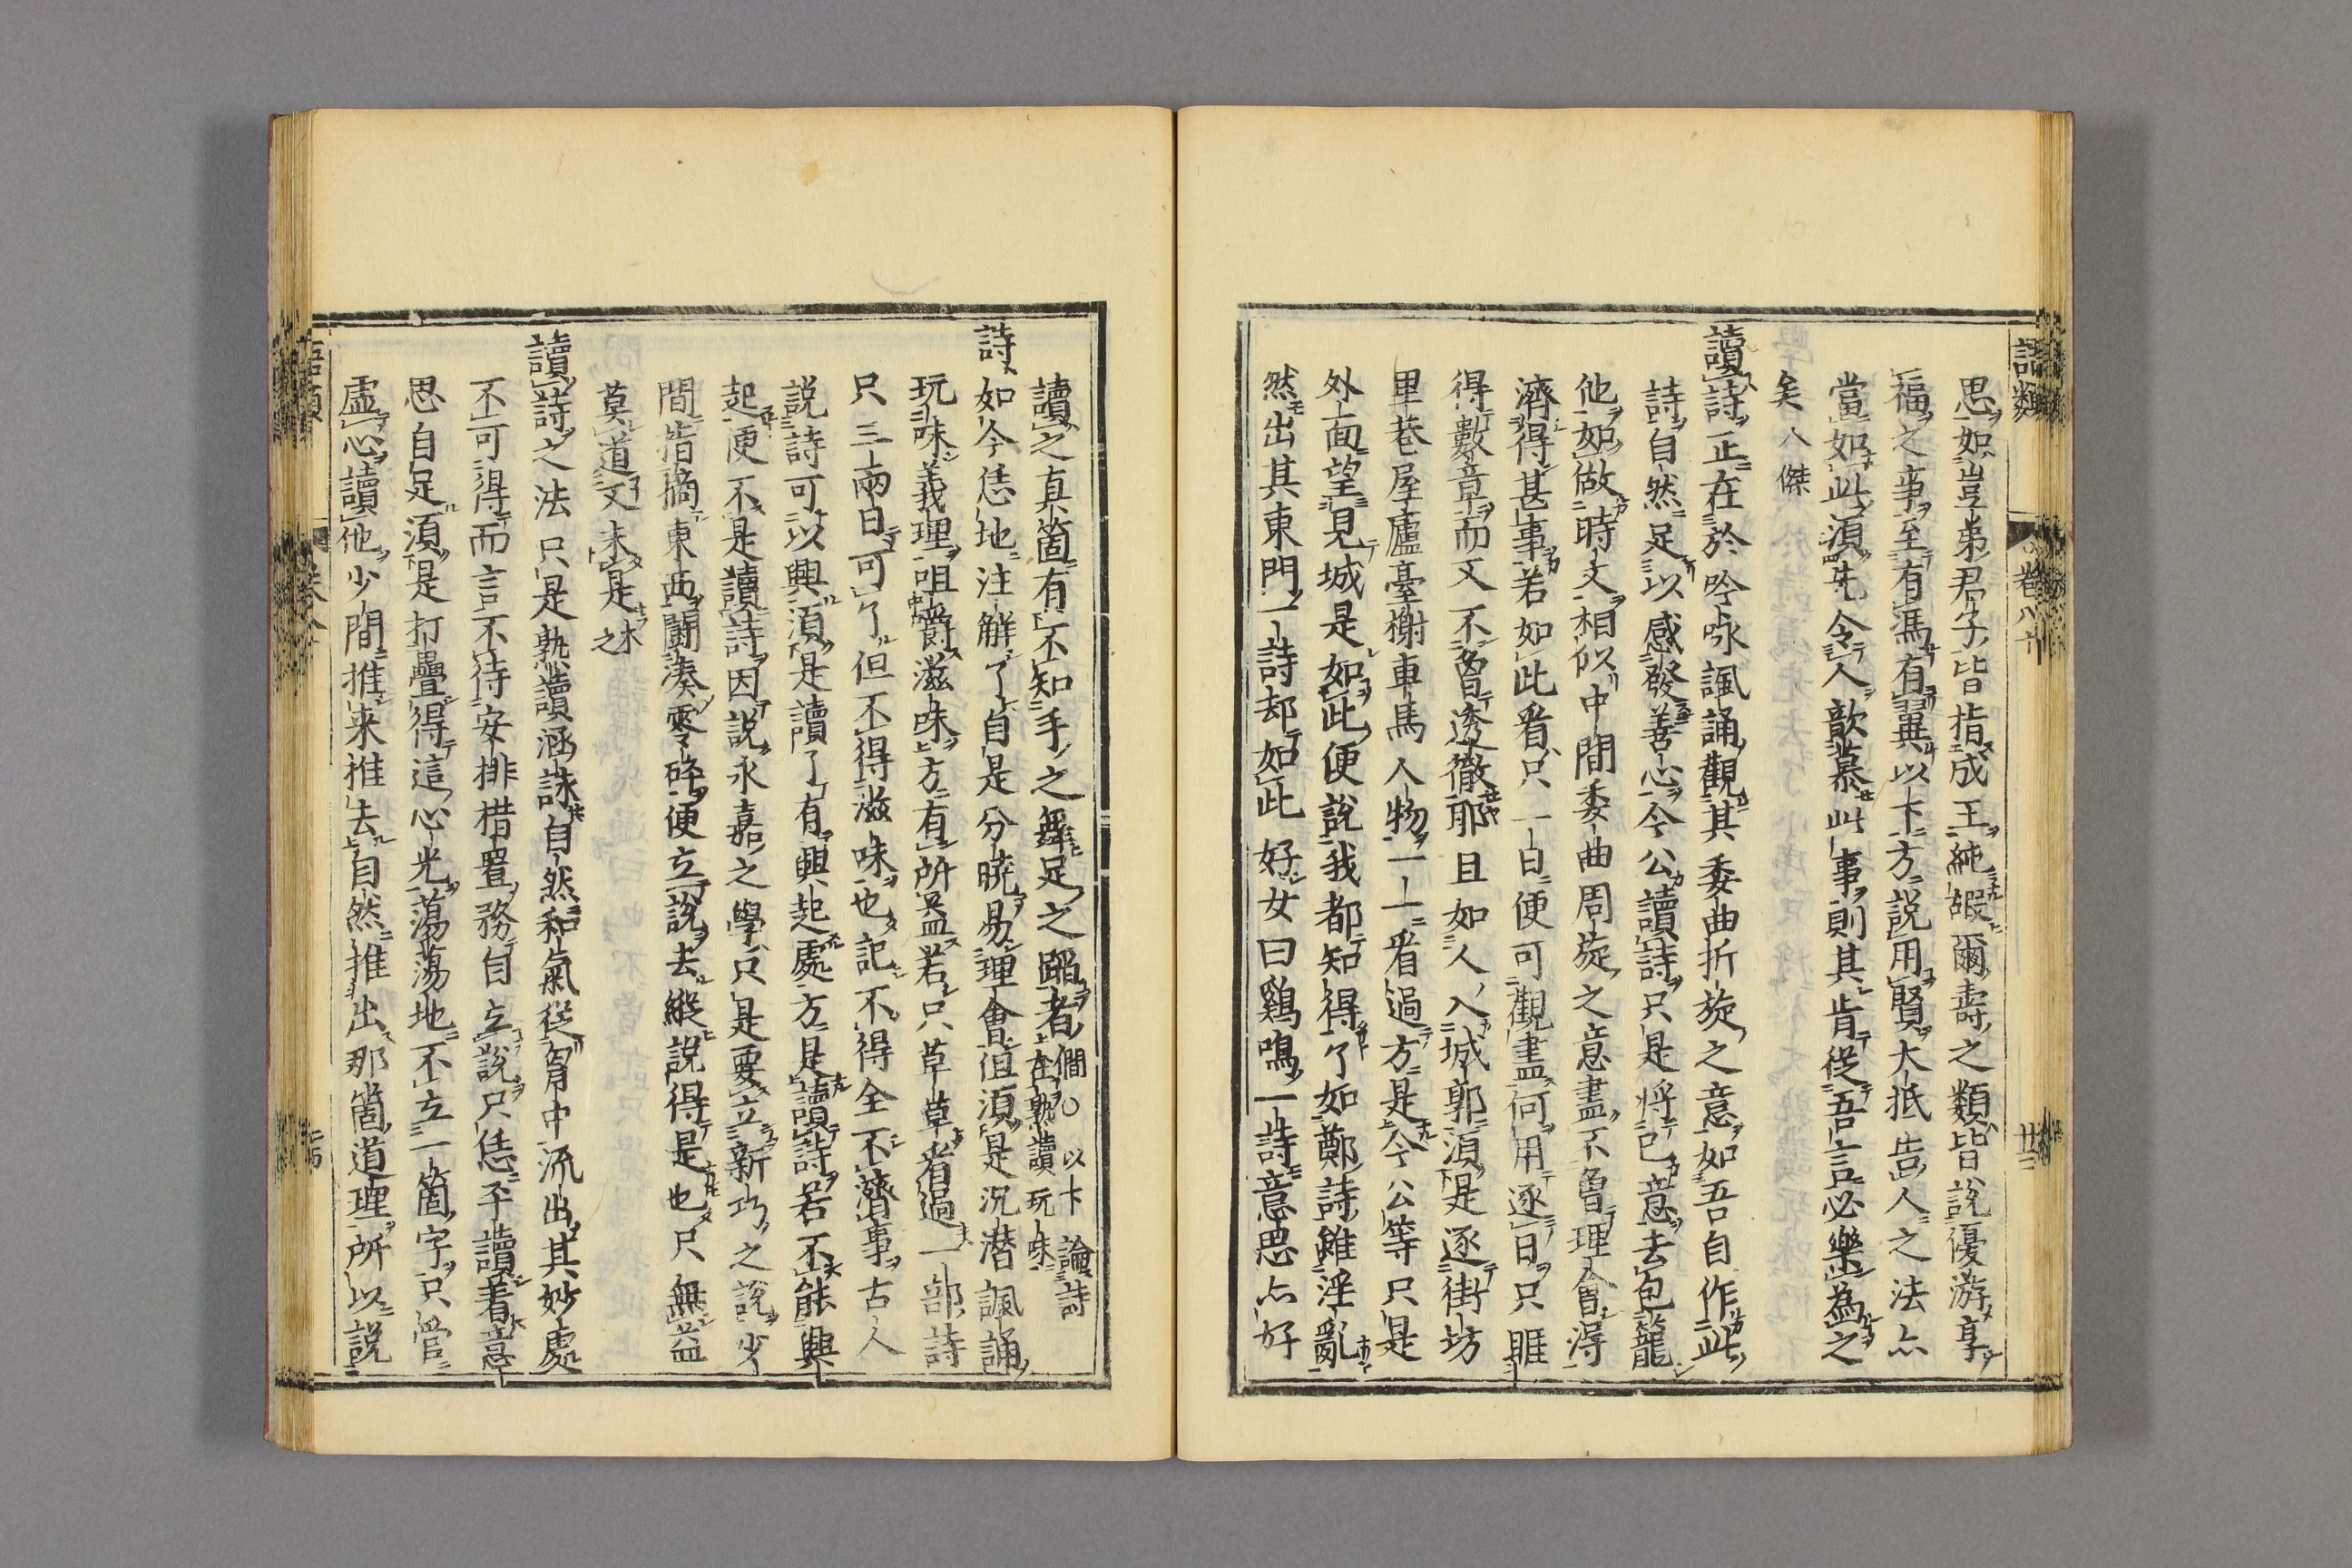 語類
卷八十
廿三
思如豈弟君子皆指成王純嘏爾壽之類皆說優游享
福之事至有馮有翼以下方說用賢大抵告人之法亦
當如此須先令人歆慕此事則其肯從吾言必樂為之
矣人傑
讀詩正在於吟咏諷誦觀其委曲折旋之意如吾自作此
詩自然足以感發善心今公讀詩只是將己意去包籠
他如做時文相似中間委曲周旋之意盡不曾理會得
濟得甚事若如此看只一日便可觀盡何用逐日只睚
得數章而又不曾透徹耶且如人入城郭須是逐街坊
里巷屋廬臺榭車馬人物一一看過方是今公等只是
外面望見城是如此便說我都知得了如鄭詩雖淫亂
然出其東門一詩却如此好女曰鷄鳴一詩意思亦好
讀之真箇有不知手之舞足之蹈者僩○以下論詩在熟讀玩味
詩如今恁地注解了自是分曉易理會但須是沉潛諷誦
玩味義理咀嚼滋味方有所益若只草草看過一部詩
只三兩日可了但不得滋味也記不得全不濟事古人
說詩可以興須是讀了有興起處方是讀詩若不能興
起便不是讀詩因說永嘉之學只是要立新巧之說少
間指摘東西鬪湊零碎便立說去縱說得是也只無益
莫道又未是木之
讀詩之法只是熟讀涵詠自然和氣從胷中流出其妙處
不可得而言不待安排措置務自立說只恁平讀着意
思自足須是打疊得這心光蕩蕩地不立一箇字只管
虛心讀他少間推来推去自然推出那箇道理所以說